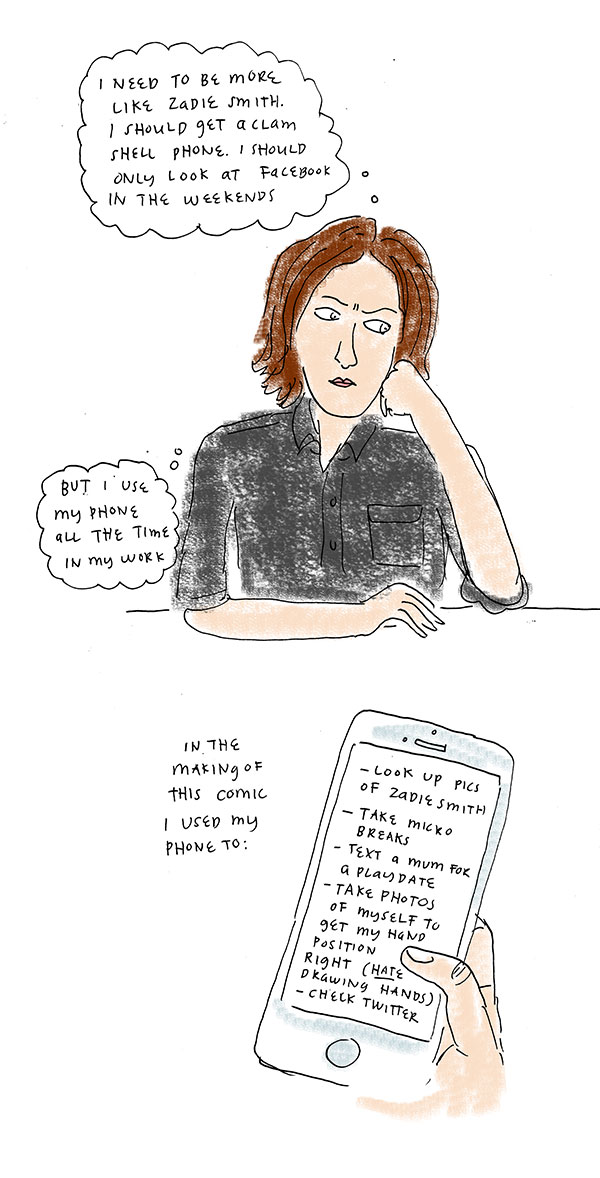 I NEED TO BE MORE
LIKE ZADIE SMITH.
I SHOULD GET A CLAM
SHELL PHONE. I SHOULD
ONLY LOOK AT FACEBOOK
IN THE WEEKENDS
BUT I USE
MY PHONE
ALL THE TIME
IN MY WORK
IN THE
MAKING OF
THIS COMIC
I USED MY
PHONE TO:
- LOOK UP PICS
OF ZADIE SMITH
- TAKE MICRO
BREAKS
- TEXT A MUM FOR
A PLAYDATE
- TAKE PHOTOS
OF MYSELF TO
GET MY HAND
POSITION
RIGHT (HATE
DRAWING HANDS)
- CHECK TWITTER